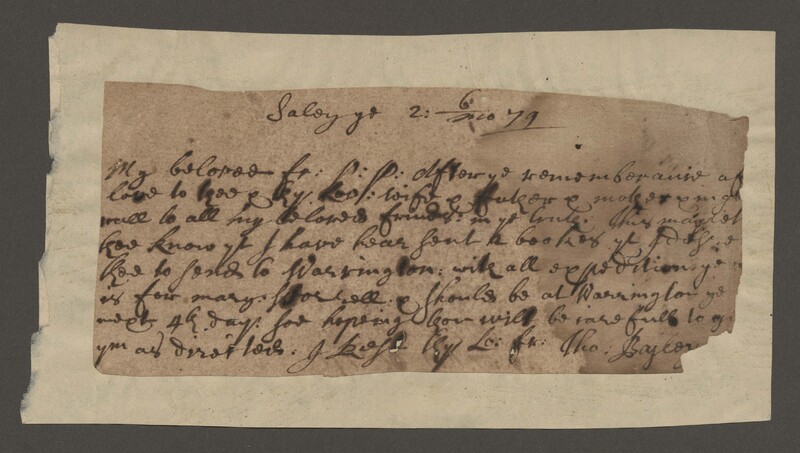 Saley ye 2: 6/mo 79
My beloved fr: P: P: After ye rememberance of
love to thee & thy Lov: wife & father & mother in g
rall to all my beloved friends in ye truth. This may let
thee know yt I have hear sent 12 bookes yt I desire
thee to send to Warrington: with all expedition ye
is for mary: & should be at Warrington ye
next 4th day. soe hoping thou will be carefull to
ym as directed. I Rest thy Lo: fr: Tho: Bayley